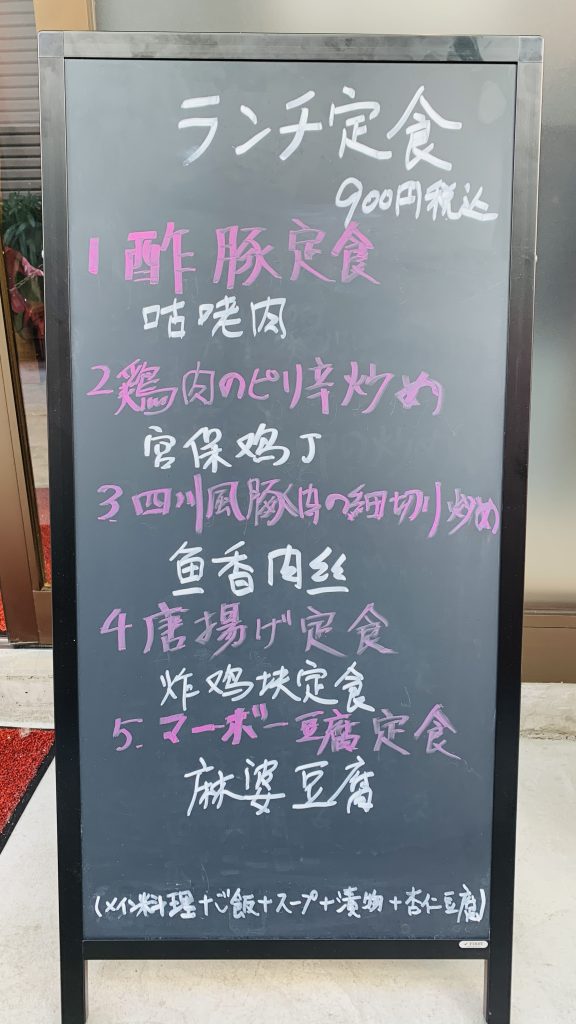 ランチ定食
900円税込
1 酢豚定食
咕咾肉
2 鶏肉のピリ辛炒め
宮保鸡丁
3.四川風豚肉の細切り炒め
鱼香肉丝
4 唐揚げ定食
炸鸡块定食
5.マーボー豆腐定食
麻婆豆腐
(メイン料理+ご飯+スープ+漬物+杏仁豆腐)